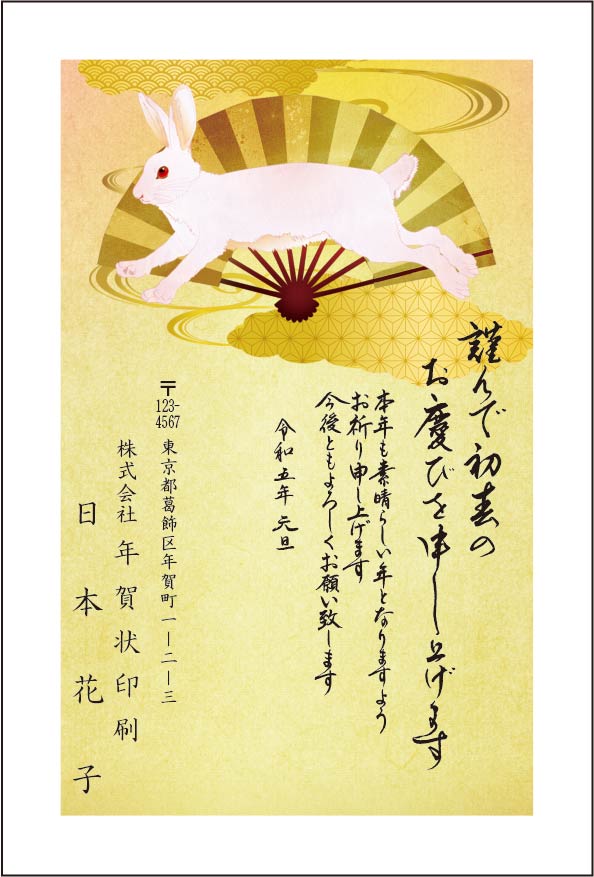 謹んで初春の
お慶びを申し上げます
本年も素晴らしい年となりますよう
お祈り申し上げます
今後ともよろしくお願い致します
令和五年 元旦
〒123-4567
東京都葛飾区年賀町一ー二ー三
株式会社 年賀状印刷
日本花子